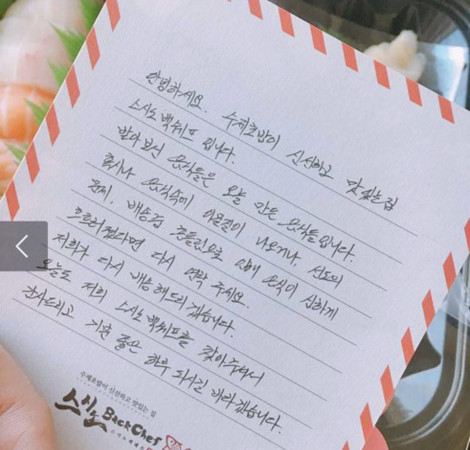 안녕하세요. 수제초밥이 신선하고 맛있는집
스시노백쉐프 입니다.
받아보신 음식들은 오늘 만든 음식들입니다.
혹시나 음식속에 이물질이 나오거나, 선도의
문제, 배송중 흔들림으로 인해 음식이 심하게
흐트러졌다면 다시 연락 주세요.
저희가 다시 배송해드리겠습니다.
오늘도 저희 스시노백쉐프를 찾아주셔서
감사드리고 기분 좋은 하루 되시길 바라겠습니다.
수제초밥이 신선하고 맛있는 집
스시노 Back Chef